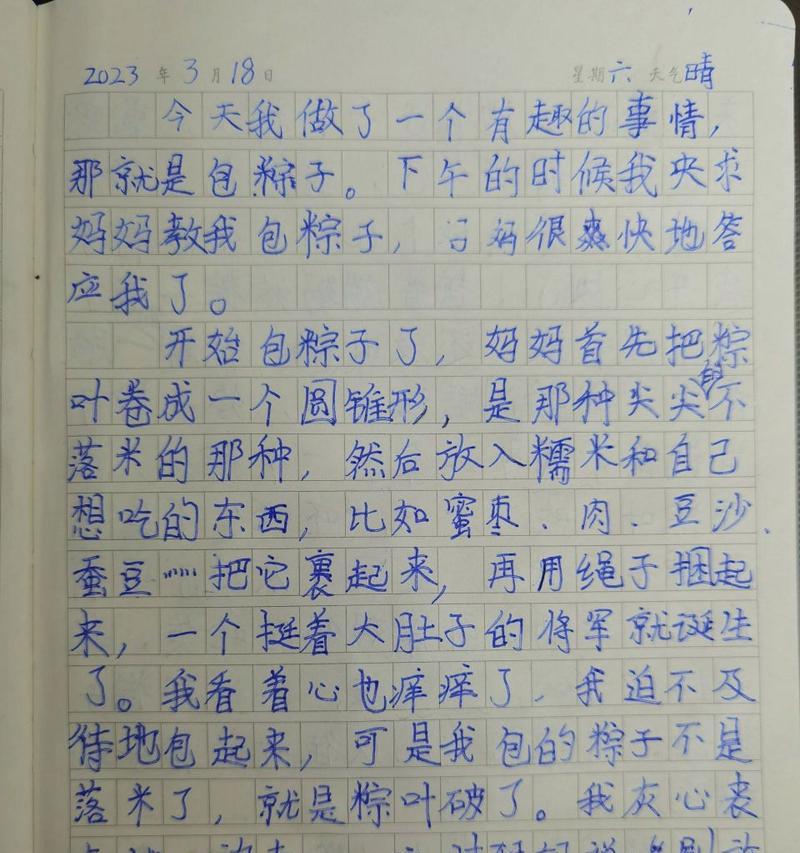 2023年3月18日 星期六 天气晴
今天我做了一个有趣的事情，
那就是包粽子。下午的时候我央求
妈妈教我包粽子，妈很爽快地答
应我了。
开始包粽子了，妈妈首先把粽
叶卷成一个圆锥形，是那种尖尖的不
落米的那种，然后放入糯米和自己
想吃的东西，比如蜜枣、肉、豆沙、
蚕豆……把它裹起来，再用绳子捆起
来，一个挺着大肚子的将军就诞生
了。我看着心也痒痒了，我迫不及
待地包起来，可是我包的粽子不是
落米了，就是粽叶破了。我灰心丧